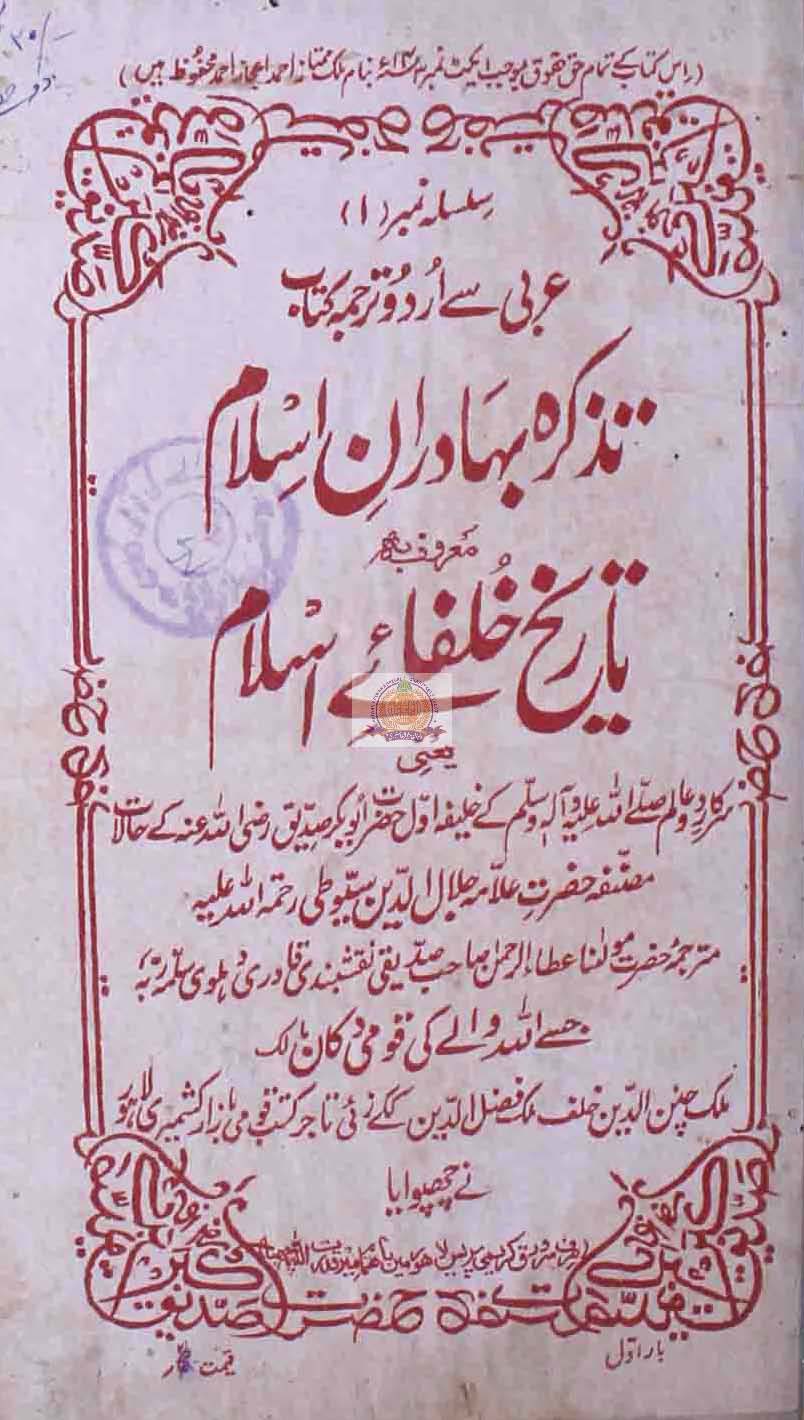 (اس کتاب کے تمام حق حقوق بموجب ایکٹ نمبر بنام ملک ممتاز احمد اعجاز احمد محفوظ ہیں)
سلسلہ نمبر (۱)
عربی سے اُردو ترجمہ کتاب
تذکرہ بہادرانِ اسلام
معروف بہ
تاریخ خُلفائے اسلام
یعنی
سرکار دو عالم صلے اللہ علیہ وآلہٖ وسلّم کے خلیفہ اوّل حضرت ابوبکر صدیق رضی اللہ عنہ کے حالات
مصنّفہ حضرت علّامہ جلال الدین سیّوطی رحمتہ اللہ علیہ
مترجمہُ حضرت مولٰنا عطاء الرحمٰن صاحب صدّیقی نقشبندی قادری دہلوی سلّمہ ربہٗ
جسے اللہ والے کی قومی دکان مالک
ملک چنن الدّین خلف ملک فضل الدّین ککے زئی تاجر کتب قومی بازار کشمیری لاہور
نے چھپوایا
صرف سرورق کریمی پریس لاہور میں باہتمام میر قدرت اللہ
بار اوّل
قیمت